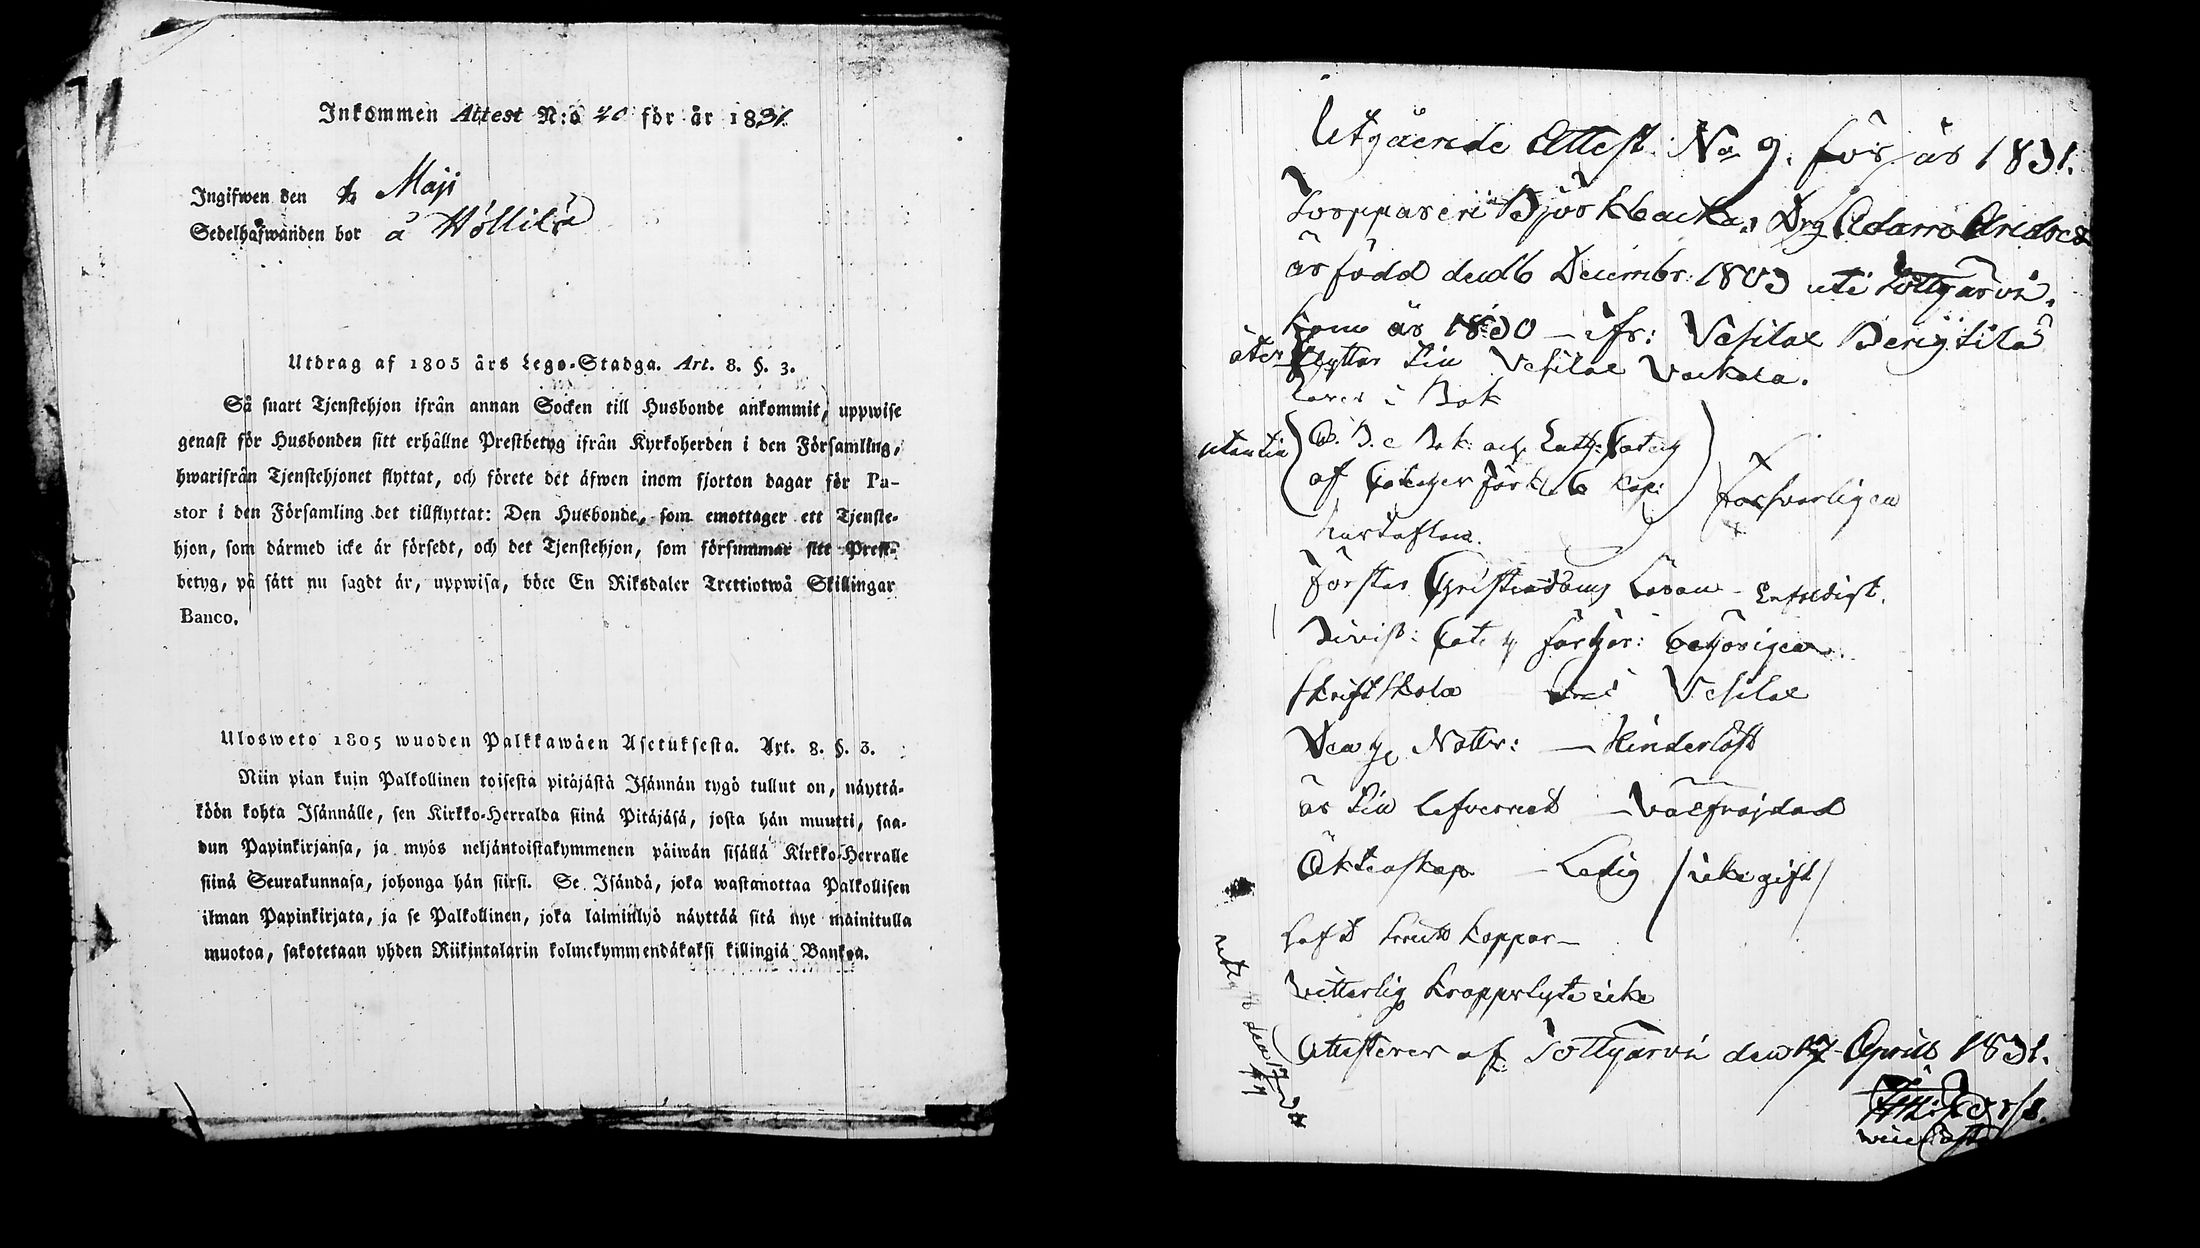 Inkommen Attest N:o 20 för år 1831.
Ingifwen den Maji
Sedelhafwanden bor å Höllilä
Utdrag af 1805 års Lego-Stadga. Art. 8. §. 3.
Så snart Tjenstehjon ifrån annan Socken till Husbonde ankommit, uppwise
genast för Husbonden sitt erhållne Prestbetyg ifrån Kyrkoherden i den Församling,
hwarifrån Tjenstehjonet flyttat, och förete det äfwen inom fjorton dagar för Pa-
stor i den Församling det tillflyttat: Den Husbonde, som emottager ett Tjenste-
hjon, som därmed icke är försedt, och det Tjenstehjon, som försummar sitt Prest-
betyg, på sätt nu sagdt är, uppwisa, böte En Riksdaler Trettiotwå Skillingar
Banco.
Ulosweto 1805 wuoden Palkkawäen Asetuksesta. Art. 8. §. 3.
Niin pian kuin Palkollinen toisesta pitäjästä Isännän tygö tullut on, näyttä-
köön kohta Isännälle, sen Kirkko-Herralda siinä Pitäjäsä, josta hän muutti, saa-
dun Papinkirjansa, ja myös neljäntoistakymmenen päiwän sisällä Kirkko-Herralle
siinä Seurakunnasa, johonga hän siirsi. Se Isändä, joka wastanottaa Palkollisen
ilman Papinkirjata, ja se Palkollinen, joka laiminlyö näyttää sitä nyt mainitulla
muotoa, sakotetaan yhden Riikintalarin kolmekymmendäkaksi killingiä Bankoa.
Utgående Attest No 9. för år 1831.
Torpparen Björkbacka, Drg Adam Andres
är född den 6 Decembr: 1803 uti Tottijärvi.
kom år 1830 – ifr: Vesilax Berg
åter flyttar till Vesilax Vackala.
Läser i Bok
utantill A. B. c Bok och Luth: Catech
af Catechez förkl. 6 Kap: försvarligen
hustaflan.
Förstår Christendoms Läran – Enfaldigt.
Bevist: Catech förhör: behörigen.
Skriftskola – Vesilax
Den h. Nattv: – Hinderlöst
är till lefvernet – välfräjdad
Äktenskap – Ledig /icke gift/
haft koppor –
vitterlig kroppslyte icke
Attesterar af Tottijärvi den 17 Aprill 1831.